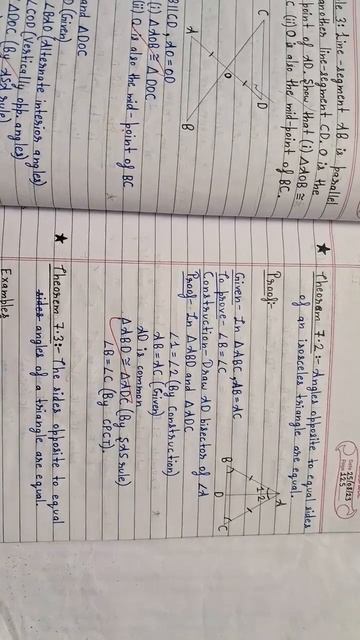 le 3: Line-segment AB is parallel
another line-segment CD. O is the
point of AD. Show that (i) ΔAOB ≅
C (ii) O is also the mid-point of BC.
C
A
O
D
B
B||CD, AO=OD
(i) ΔAOB ≅ ΔDOC
(ii) O is also the mid-point of BC
and ΔDOC
D (Given)
∠BAO (Alternate interior angles)
∠COD (Vertically opp. angles)
ΔDOC (By ASA rule)
Date 25/08/23
Page 125
★ Theorem 7.2:- Angles opposite to equal sides
of an isosceles triangle are equal.
Proof:-
A
1 2
B D C
Given- In ΔABC, AB=AC
To prove- ∠B=∠C
Construction- Draw AD bisector of ∠A
Proof- In ΔABD and ΔADC
∠1=∠2 (By Construction)
AB=AC (Given)
AD is common
ΔABD ≅ ΔADC (By SAS rule)
∠B=∠C (By CPCT).
★ Theorem 7.3:- The sides opposite to equal
sides angles of a triangle are equal.
Examples